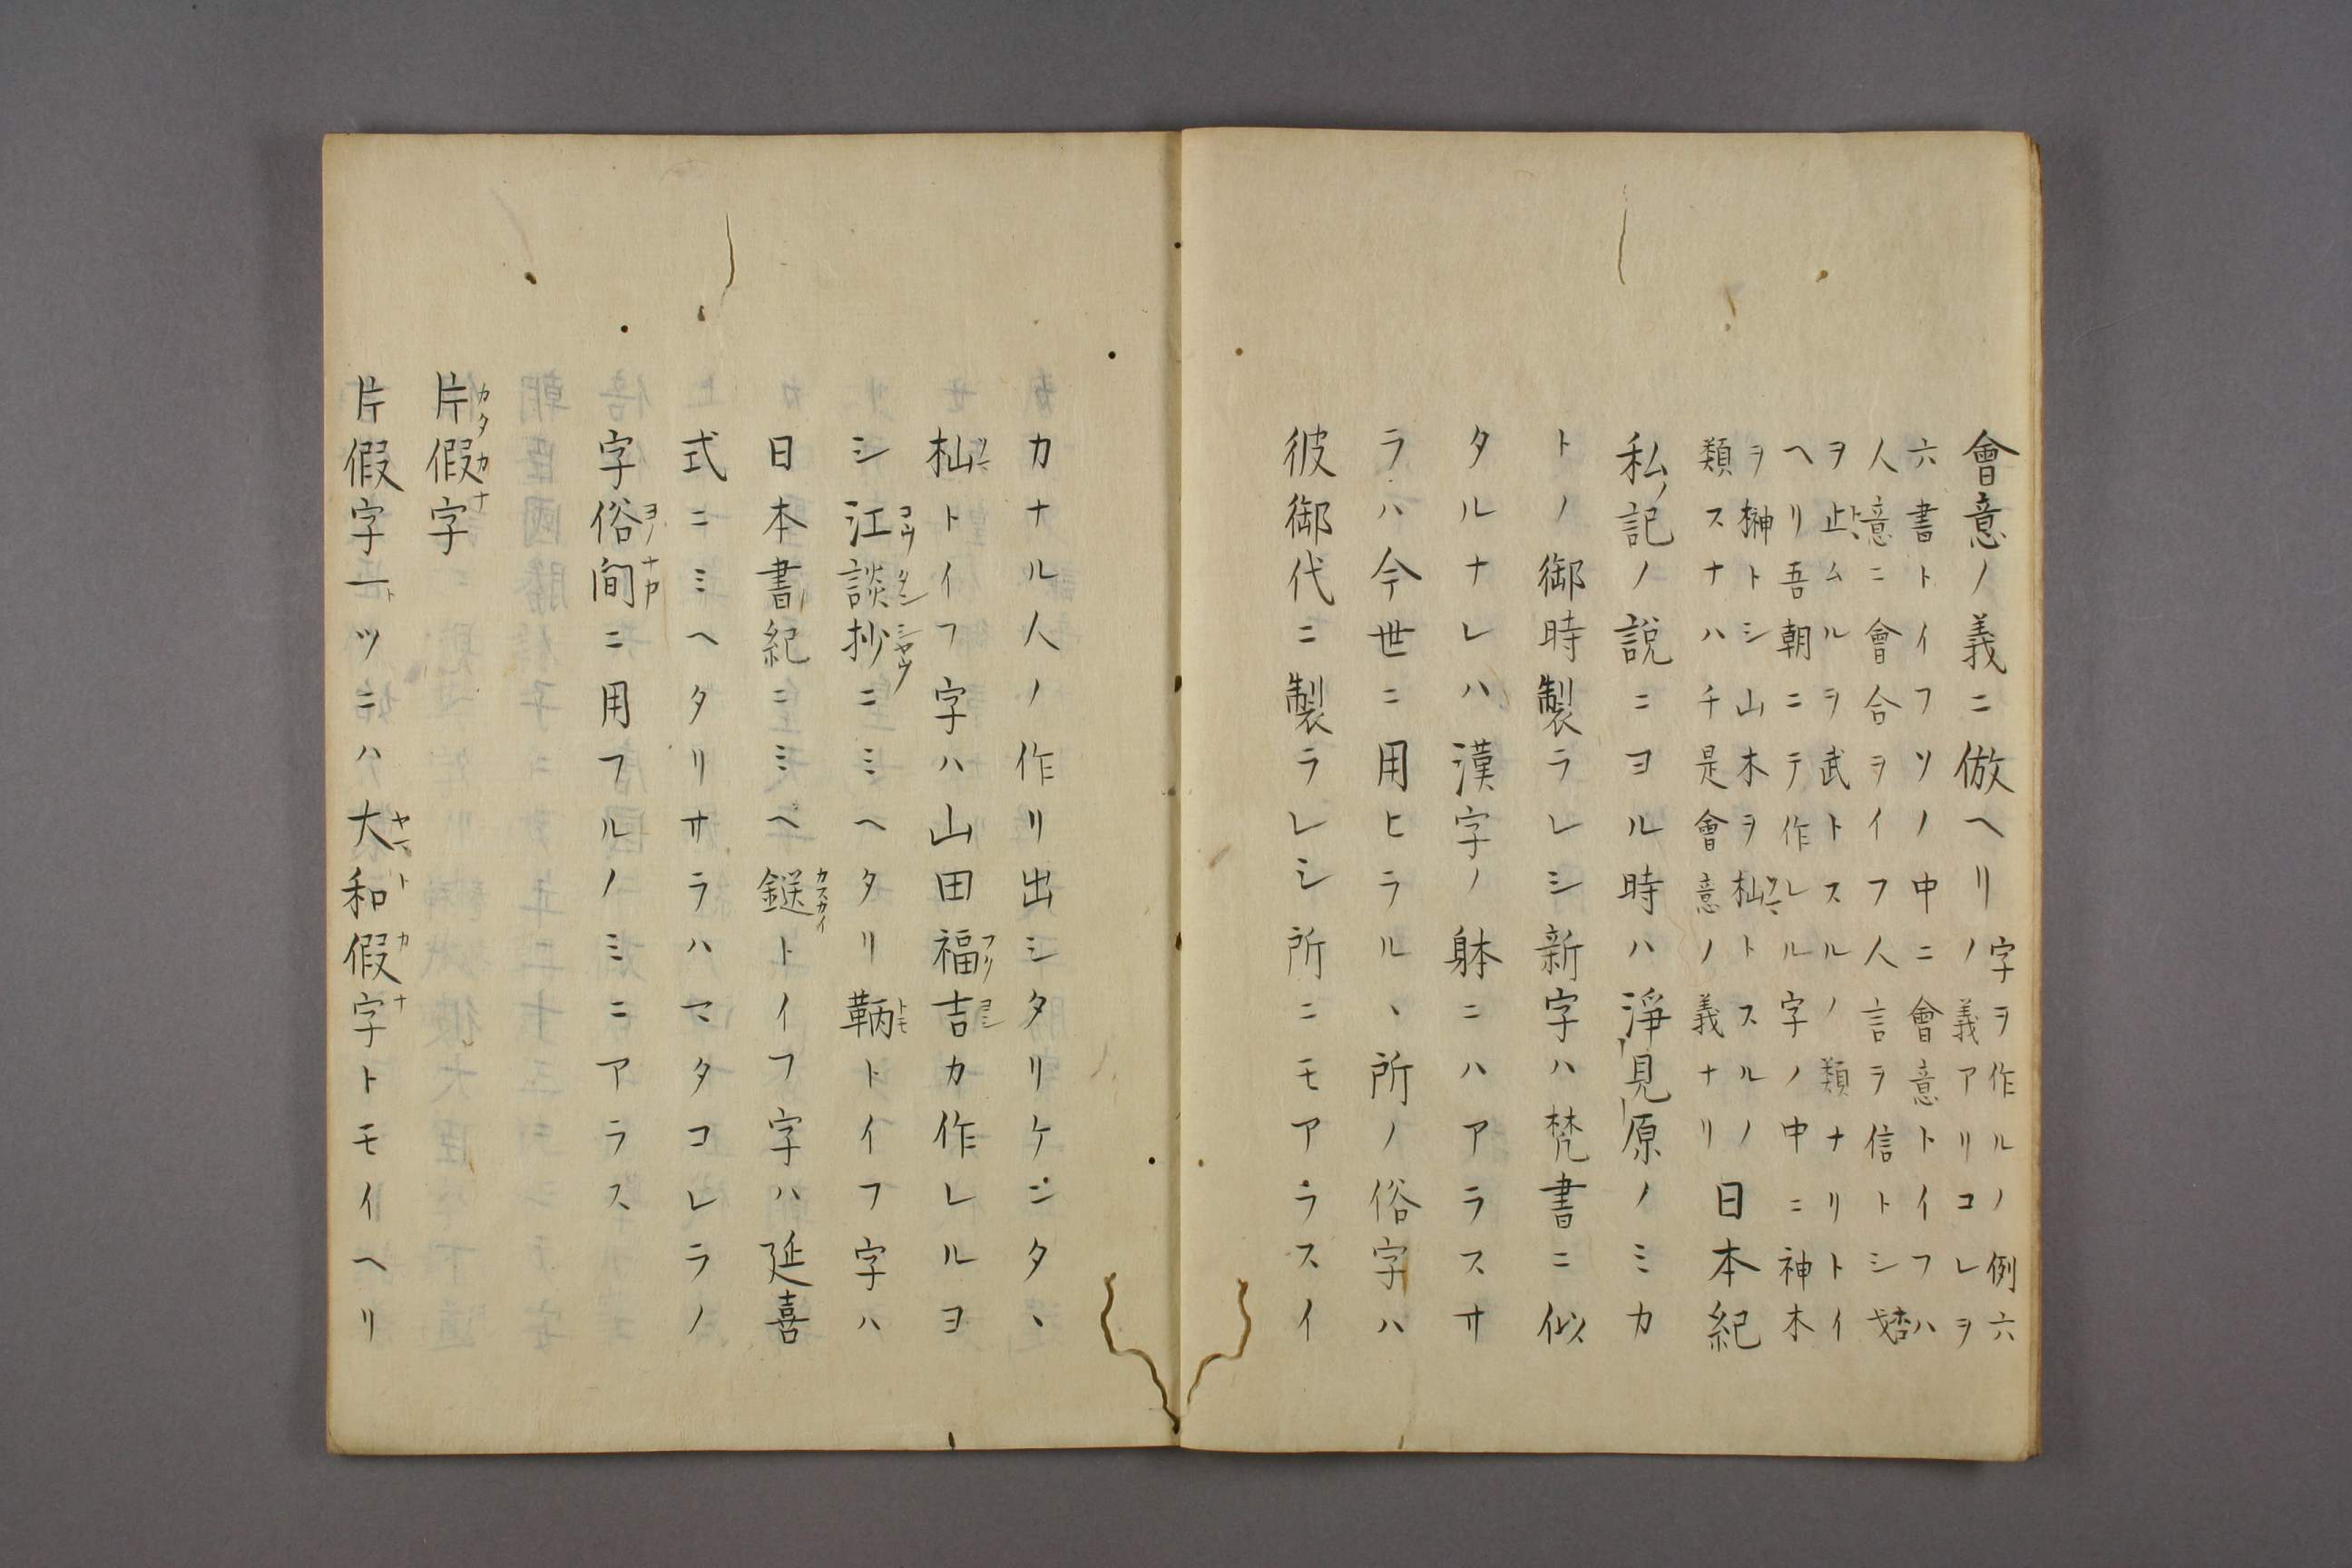 會意ノ義ニ倣ヘリ
字ヲ作ルノ例六
ノ義アリコレヲ
六書トイフソノ中ニ會意トイフハ
人意ニ會合ヲイフ人言ヲ信トシ戈
ヲ止ムルヲ武トスルノ類ナリトイ
ヘリ吾朝ニテ作レル字ノ中ニ神木
ヲ榊トシ山木ヲ杣トスルノ
類スナハチ是會意ノ義ナリ
日本紀
私記ノ説ニヨル時ハ淨見原ノミカ
トノ御時製ラレシ新字ハ梵書ニ似
タルナレハ漢字ノ躰ニハアラスサ
ラハ今世ニ用ヒラルヽ所ノ俗字ハ
彼御代ニ製ラレシ所ニモアラスイ
カナル人ノ作リ出シタリケンタヽ
杣トイフ字ハ山田福吉カ作レルヨ
シ江談抄ニミヘタリ鞆トイフ字ハ
日本書紀ニミヘ鎹トイフ字ハ延喜
式ニミヘタリサラハマタコレラノ
字俗間ニ用フルノミニアラス
片假字
片假字一ツニハ大和假字トモイヘリ